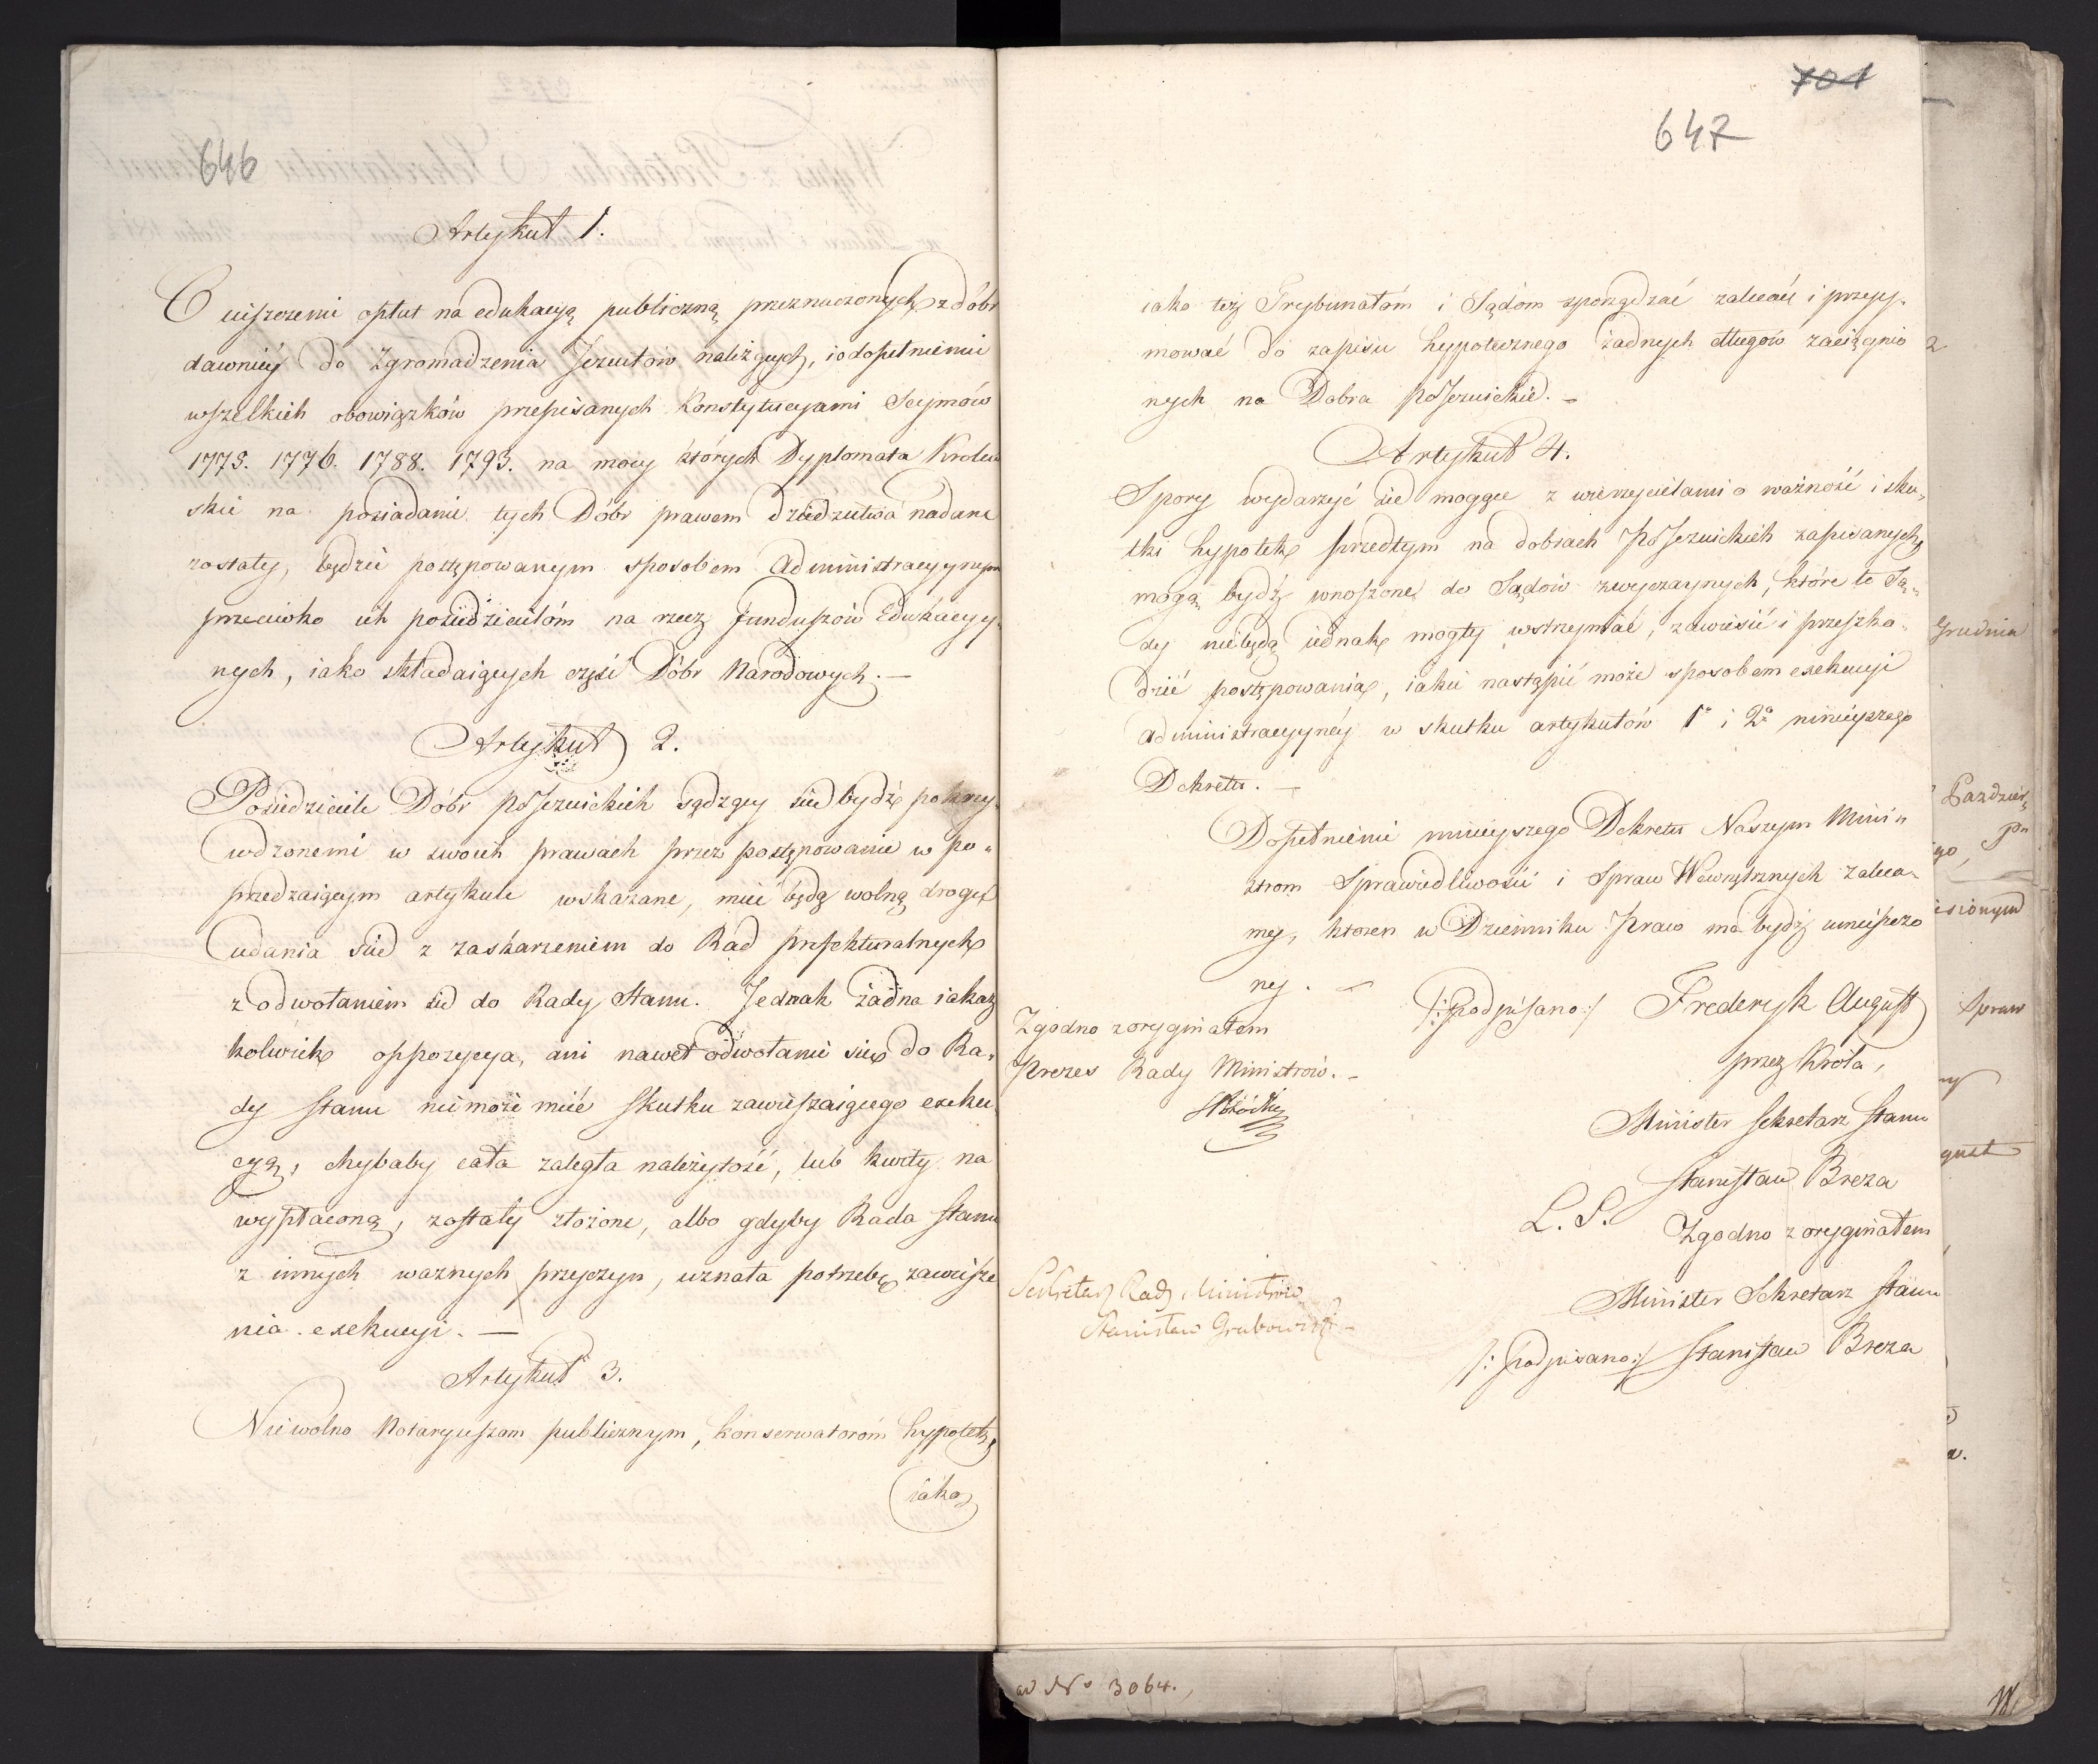 646
Artykuł 1.
O uiszczenie opłat na edukacyą publiczną przeznaczonych z dóbr
dawniey do Zgromadzenia Jezuitów należących, i o dopełnienie
wszelkich obowiązków przepisanych Konstytucyami Seymów
1775. 1776. 1788. 1793. na mocy których Dyplomata Królew
skie na posiadanie tych Dóbr prawem dziedzictwa nadane
zostały, będzie postępowanym sposobem administracyynym
przeciwko ich posiedzicielóm na rzecz funduszów Edukacyy„
nych, iako składaiących część Dóbr Narodowych. —
Artykuł 2.
Posiedziciele Dóbr poJezuickich sądzący się bydź pokrzy„
wdzonemi w swoich prawach przez postępowanie w po„
przedzaiącym artykule wskazane, mieć będą wolną drogę
udania się z zaskarżeniem do Rad prefekturalnych
z odwołaniem się do Rady Stanu. Jednak żadna iakaż
kolwiek oppozycya, ani nawet odwołanie się do Ra„
dy Stanu nie może mieć skutku zawieszaiącego exeku
cyą, chybaby cała zaległa należytość, lub kwity na
wypłaconą, zostały złożone, albo gdyby Rada Stanu
z innych ważnych przyczyn, uznała potrzebę zawiesze
nia exekucyi. —
Artykuł 3.
Niewolno Notaryuszom publicznym, konserwatoróm hypotek,
iako
701
647
iako też Trybunałóm i Sądóm sporządzać zaleceń i przyy„
mować do zapisu hypotecznego żadnych długów zaciągnio
nych na Dobra poJezuickie. —
Artykuł 4.
Spory wydarzyć się mogące z wierzycielami o ważność i sku„
tki hypotek przedtym na dobrach poJezuickich zapisanych,
mogą bydź wnoszone do Sądów zwyczaynych, które to Są„
dy nie będą iednak mogły wstrzymać, zawiesić i przeszko„
dzić postępowania, iakie nastąpić może sposobem exekucyi
administracyyney w skutku artykułów 1° i 2° ninieyszego
Dekretu. —
Dopełnienie ninieyszego Dekretu Naszym Mini„
strom Sprawiedliwości i Spraw Wewnętrznych zaleca„
my, któren w Dzienniku Praw ma bydź umieszczo
ny. —
/:Podpisano:/ Frederyk August
przez Króla,
Minister Sekretarz Stanu
Stanisław Breza
L. S.
Zgodno z oryginałem
Minister Sekretarz Stanu
/:podpisano:/ Stanisław Breza
Zgodno z oryginałem
Prezes Rady Ministrów. —
Sekretarz Rady Ministrów
Stanisław Grabowski
2
Grudnia
Paździer„
go,
esionym
Spraw
gust
a.
ad No 3064.